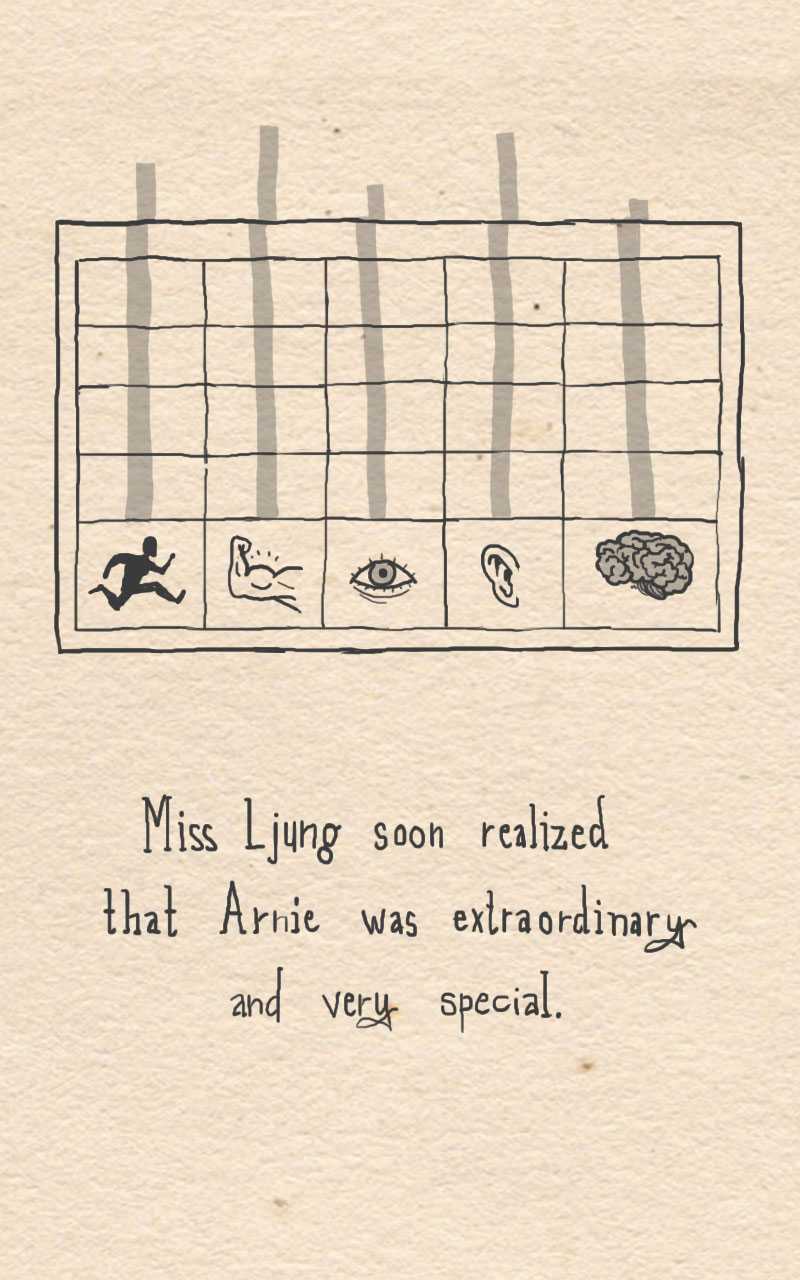 Miss Ljung soon realized
that Arnie was extraordinary
and very special.